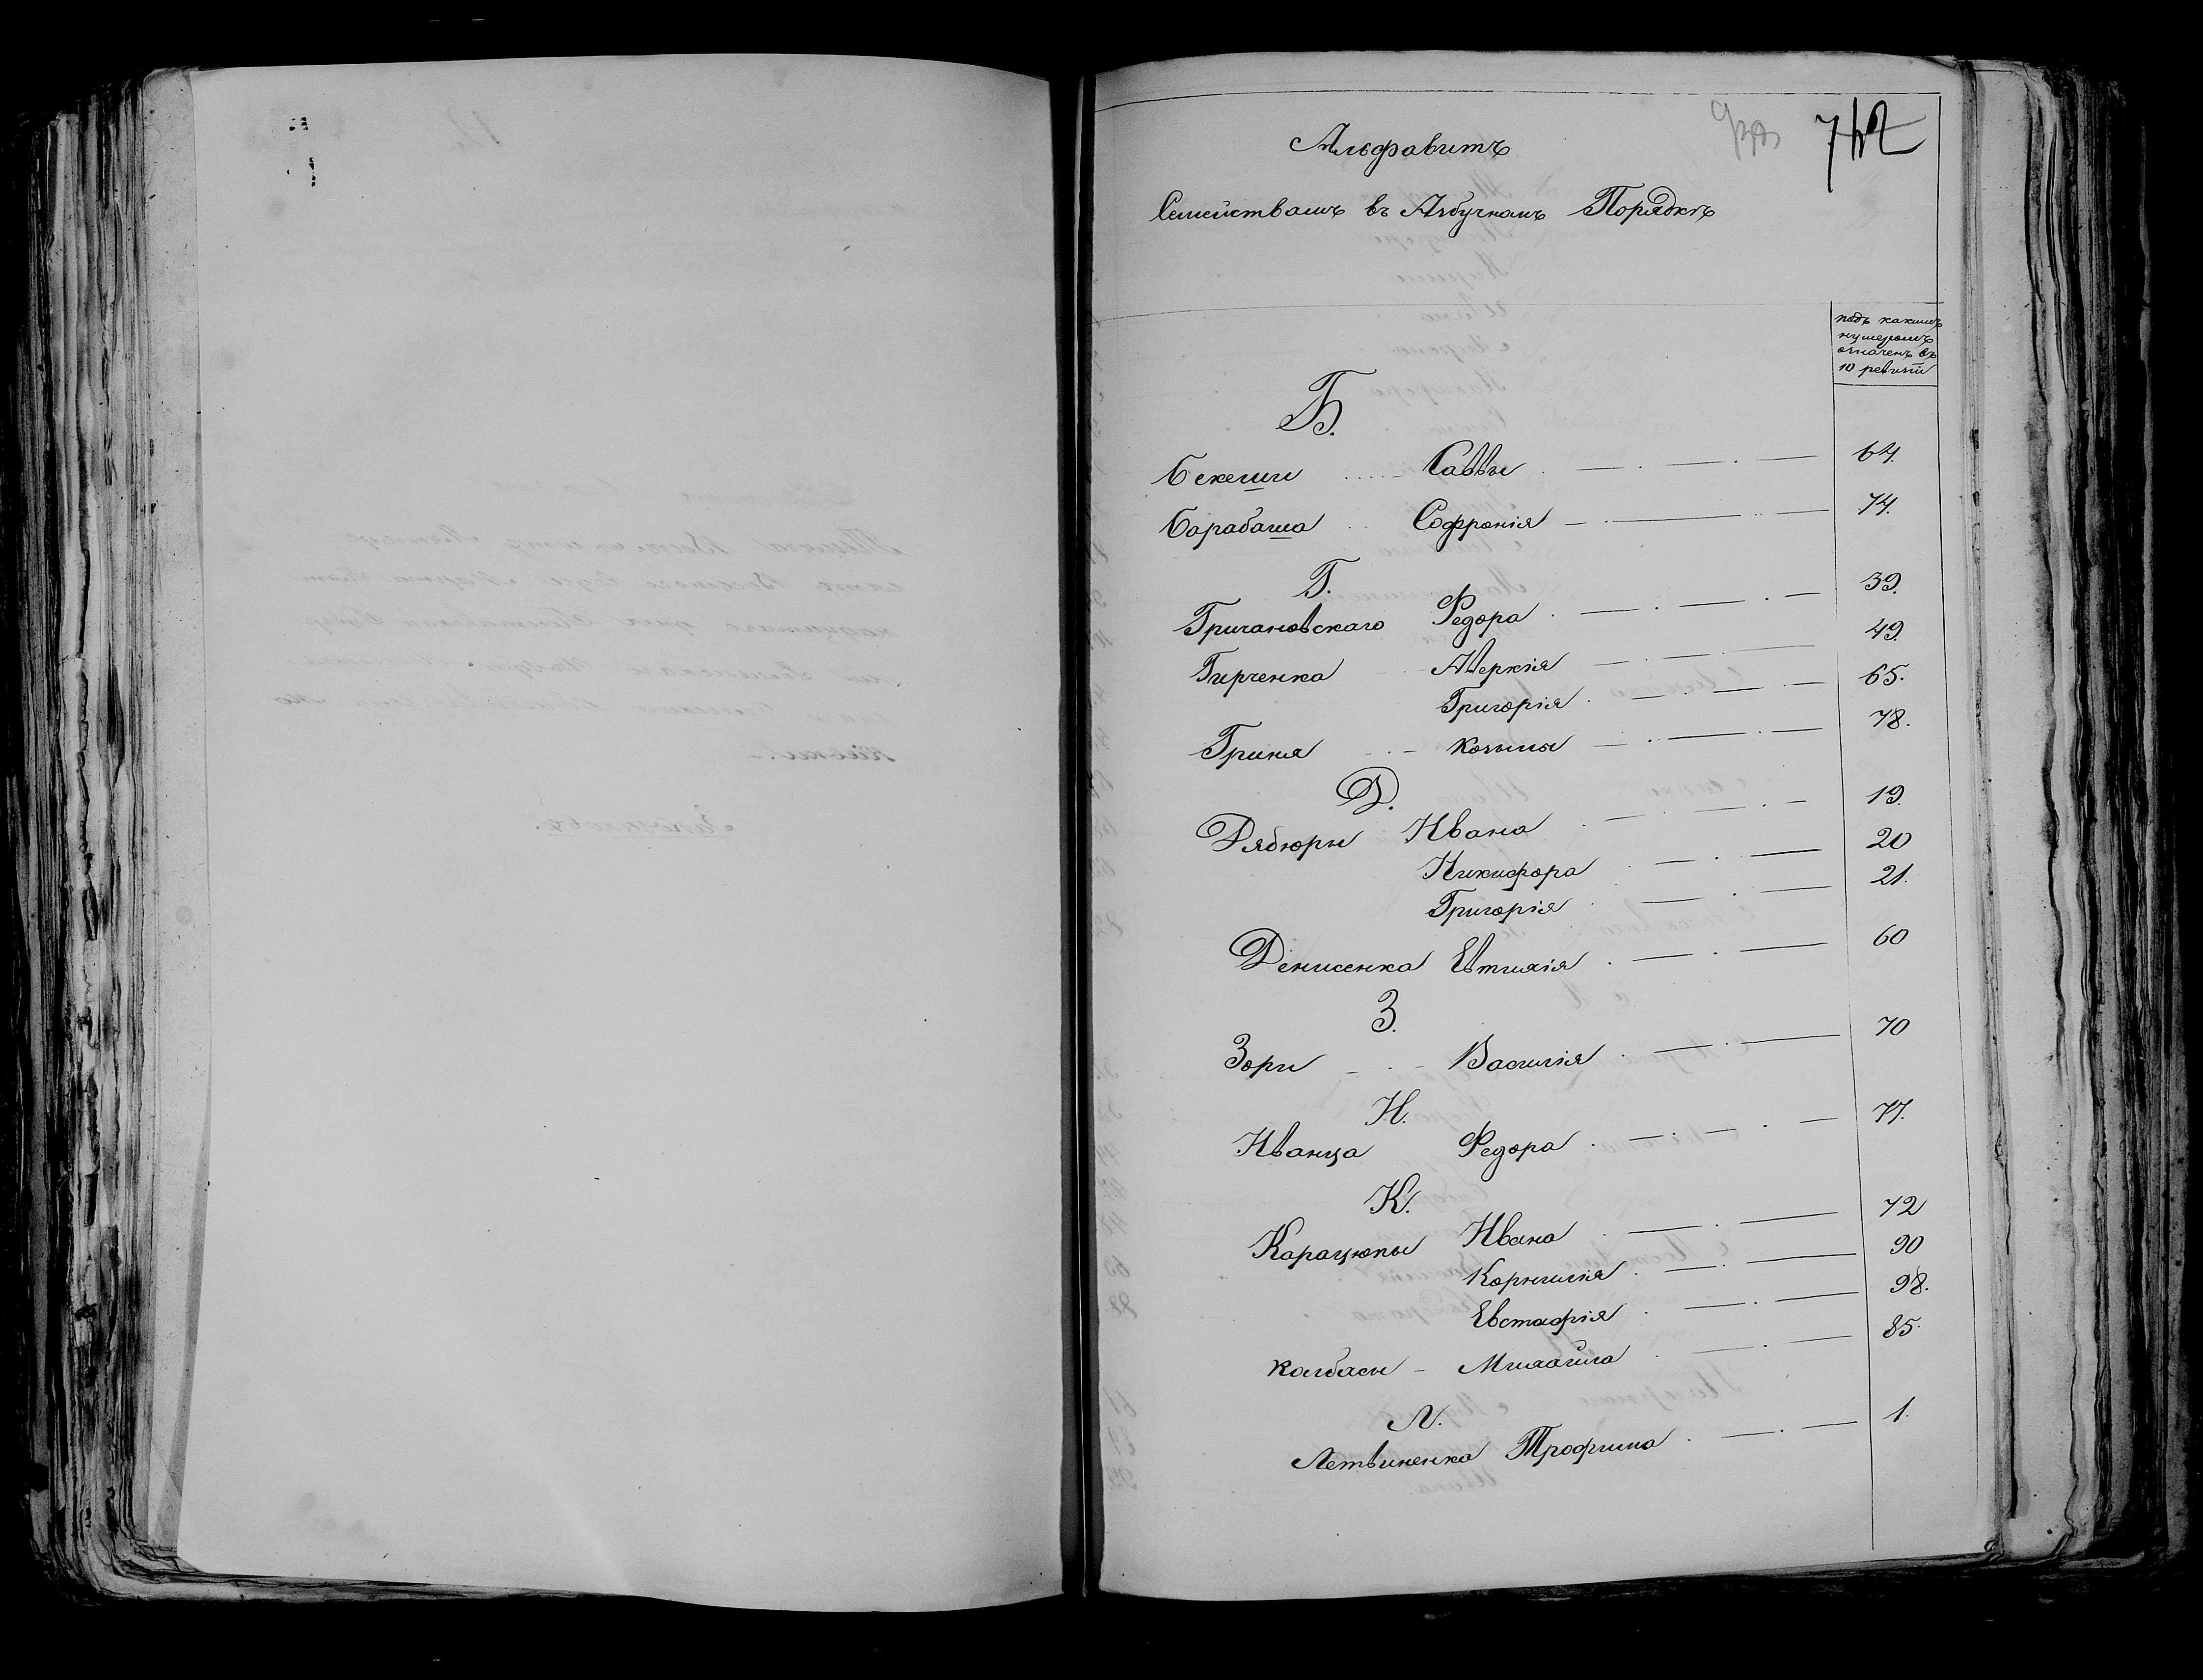 742
Альфавитъ
Семействамъ въ Азбучномъ Порядкѣ
подъ какимъ
нумеромъ
означенъ въ
10 ревизіи
Б.
Бекеши Саввы 64.
Барабаша Софронія 74.
Г.
Гричановскаго Федора 39.
Гирченка Аверкія 49.
Григорія 65.
Гриня Козьмы 78.
Д.
Дзюбюры Ивана 19.
Никифора 20
Григорія 21.
Денисенка Евтихія 60
З.
Зори Василія 70
И.
Иванца Федора 77.
К.
Карацюпы Ивана 72
Корнилія 90
Евстафія 98.
Колбасы - Михайла 85.
Л.
Летвиненка Трофима 1.